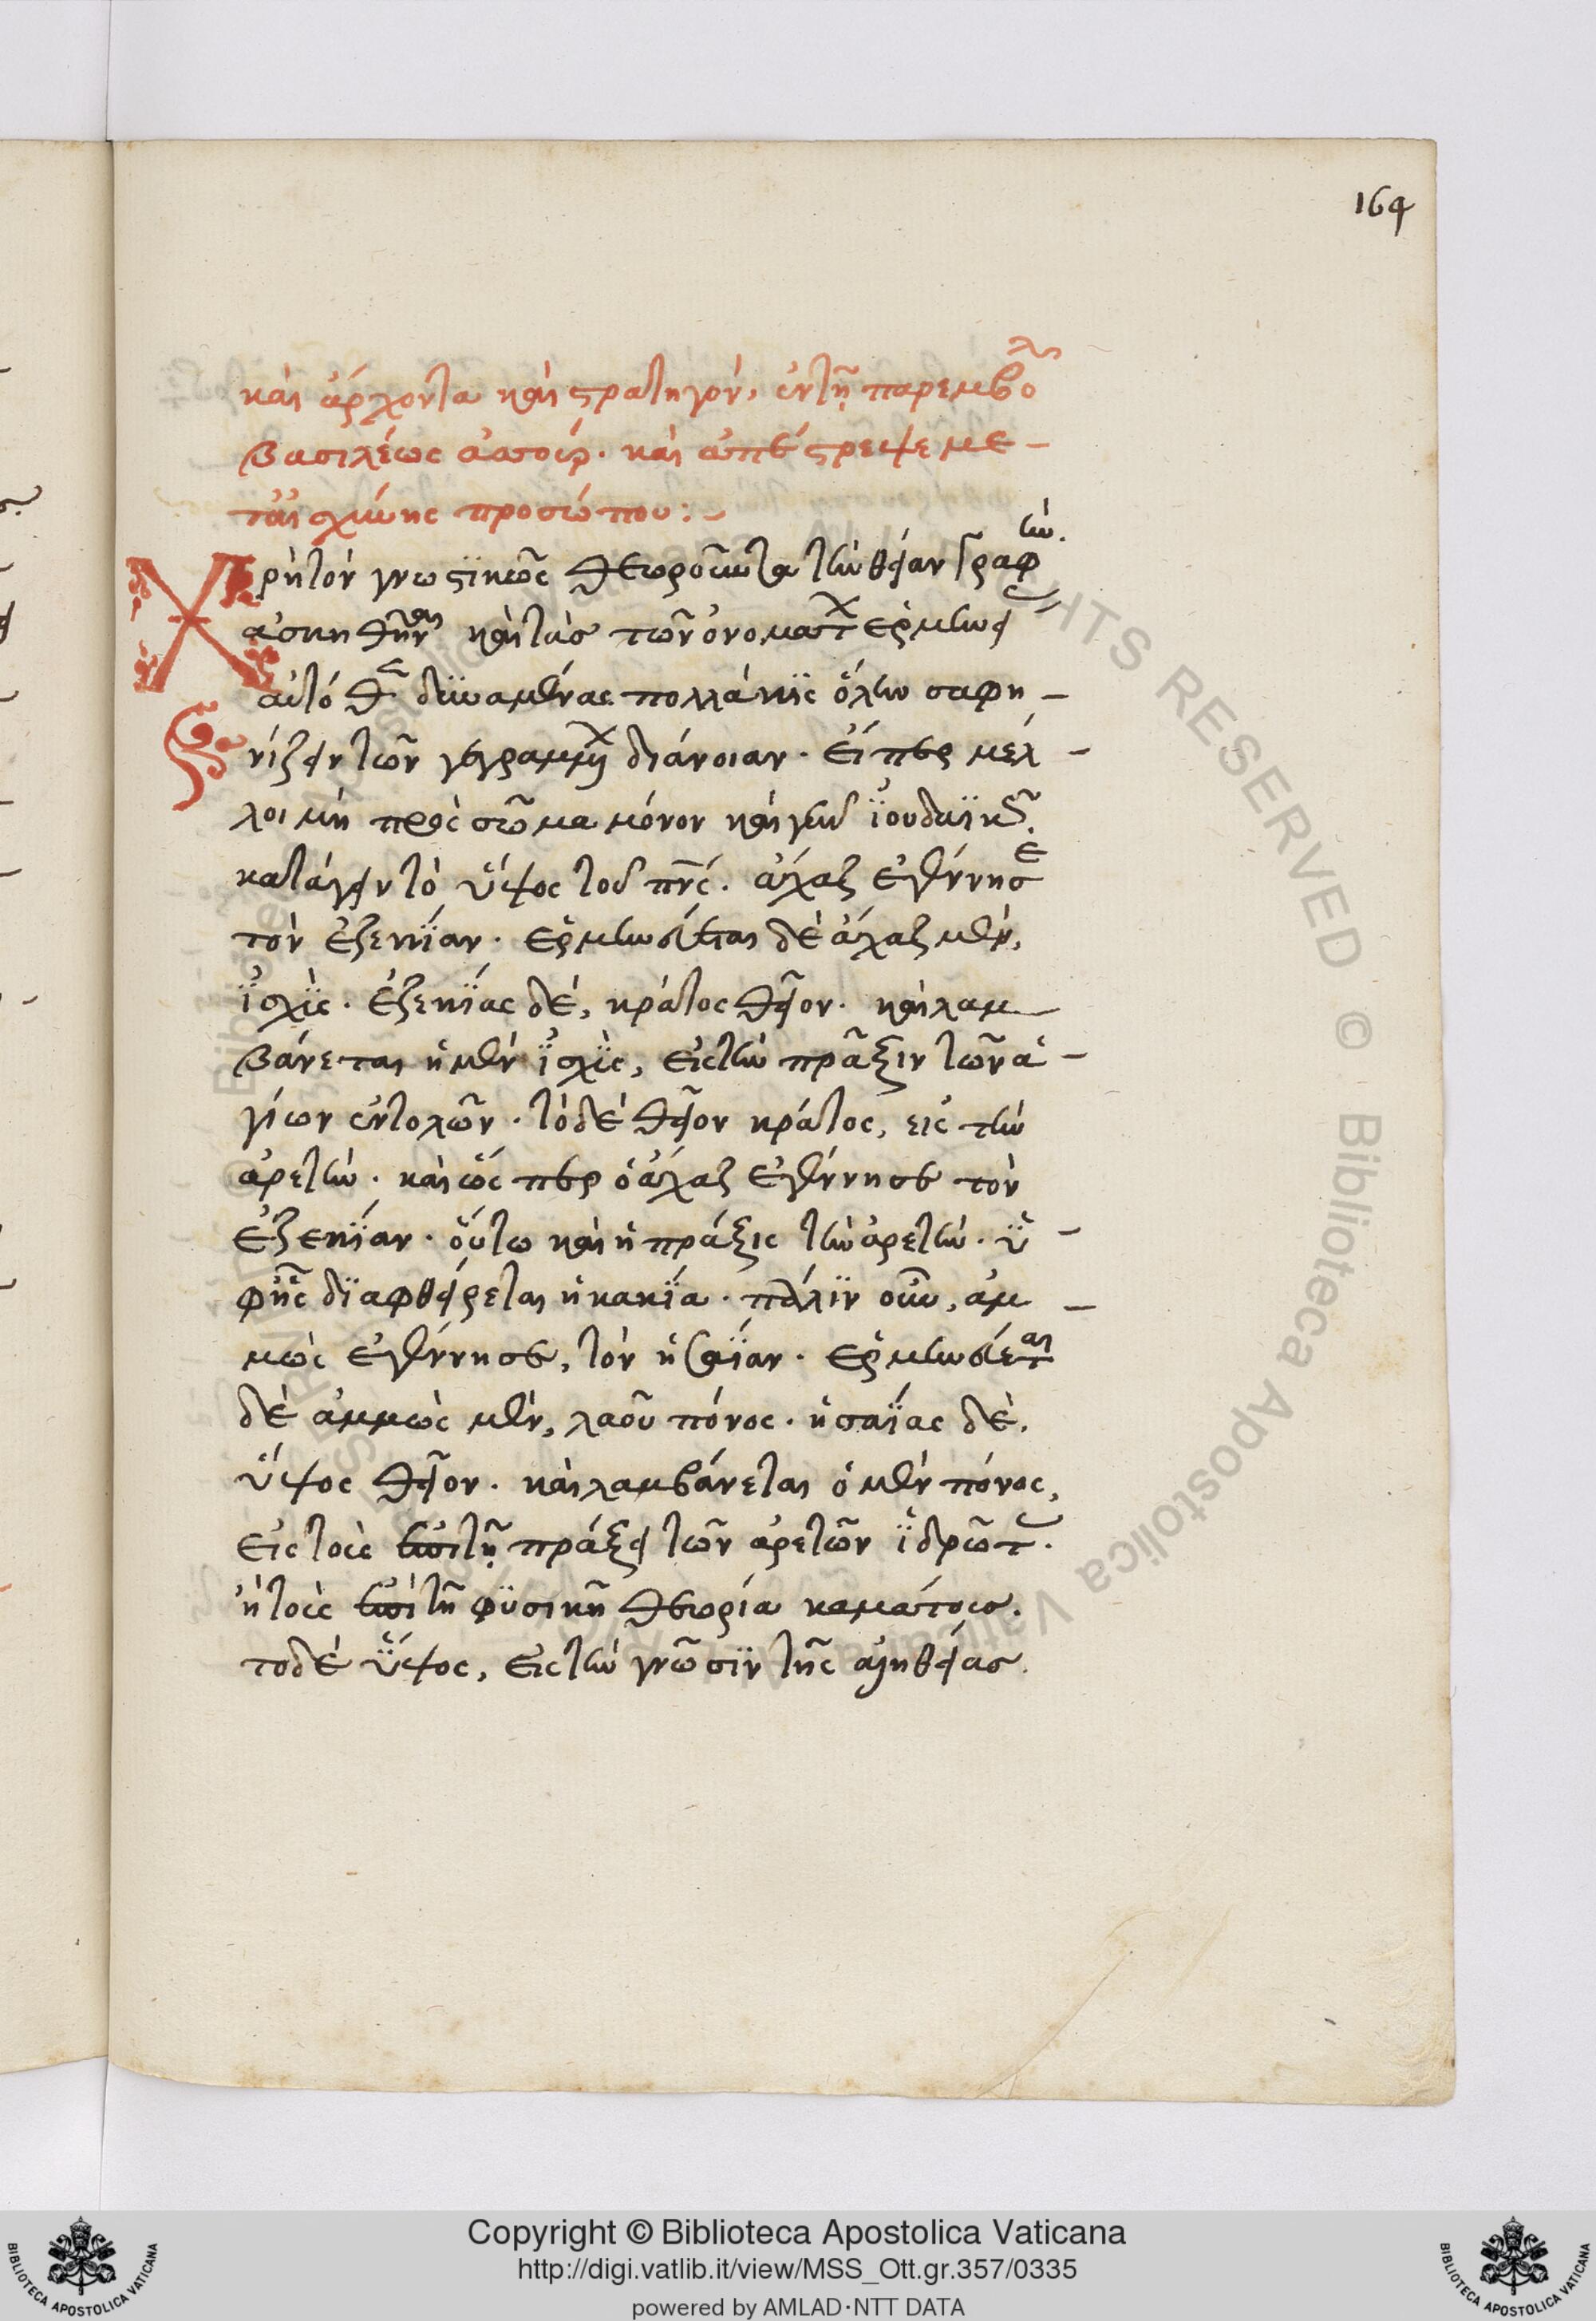 164
καὶ ἄρχοντα καὶ στρατηγὸν, ἐν τῆ παρεμβολῆ
βασιλέως ἀσσοὺρ. καὶ ἀπέστρεψε με-
τ' αἰσχύνης προσώπου:-
Χρὴ τὸν γνωστικῶς θεωροῦντα τὴν θείαν γραφὴν.
ἀσκηθῆναι καὶ τὰς τῶν ὀνομάτων ἑρμηνείας
αὐτόθεν δυναμένας πολλάκις ὅλην σαφη-
νίζειν τῶν γεγραμμένων διάνοιαν. εἴπερ μέλ-
λοι μὴ πρὸς σῶμα μόνον καὶ γῆν ἰουδαϊκῶς.
κατάγειν τὸ ὕψος τοῦ πνς. ἄχαζ ἐγέννησε
τὸν ἐζεκίαν. ἑρμηνεύεται δὲ ἄχαζ μὲν,
ἰσχὺς. ἐζεκίας δὲ, κράτος θεῖον. καὶ λαμ
βάνεται ἡ μὲν ἰσχὺς, εἰς τὴν πρᾶξιν τῶν ἁ-
γίων ἐντολῶν. τὸ δὲ θεῖον κράτος, εἰς τὴν
ἀρετὴν. καὶ ὥσπερ ὁ ἄχαζ ἐγέννησε τὸν
ἐζεκίαν. οὕτω καὶ ἡ πράξις τὴν ἀρετὴν. ὑ-
φ' ἧς διαφθείρεται ἡ κακία. πάλιν οὖν, ἀμ-
μὼς ἐγέννησε, τὸν ἡσαΐαν. ἑρμηνεύεται
δὲ ἀμμὼς μὲν, λαοῦ πόνος. ἡσαΐας δὲ.
ὕψος θεῖον. καὶ λαμβάνεται ὁ μὲν πόνος,
εἰς τοὺς ἐπὶ τῆ πράξει τῶν ἀρετῶν ἱδρῶτας.
ἢ τοὺς ἐπὶ τῆ φυσικῆ θεωρία καμάτους.
τὸ δὲ ὕψος, εἰς τὴν γνῶσιν τῆς ἀληθείας.
Copyright © Biblioteca Apostolica Vaticana
http://digi.vatlib.it/view/MSS_Ott.gr.357/0335
powered by AMLAD·NTT DATA